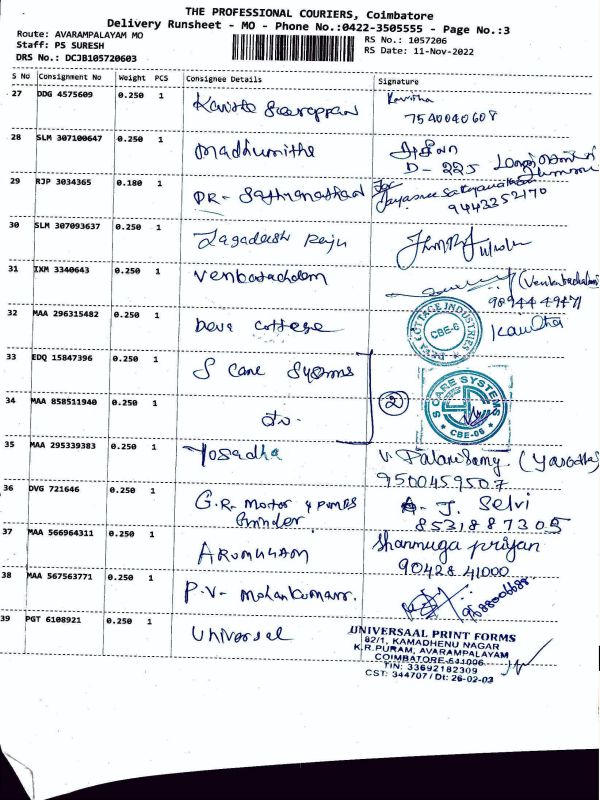 THE PROFESSIONAL COURIERS, Coimbatore
Delivery Runsheet - MO - Phone No.:0422-3505555 - Page No.:3
Route: AVARAMPALAYAM MO
Staff: PS SURESH
DRS No.: DCJB105720603
RS No.: 1057206
RS Date: 11-Nov-2022
S No Consignment No Weight PCS Consignee Details Signature
27 DDG 4575609 0.250 1 Kavitha
7540040608
28 SLM 307100647 0.250 1 Madhumitha
D - 225
29 RJP 3034365 0.180 1 DR - Sathyanathan for Jayasree
9443252170
30 SLM 307093637 0.250 1 Jagadeesh Raju
31 IXM 3340643 0.250 1 Venkatachalam (Venkatachalam)
9894449471
32 MAA 296315482 0.250 1 Deva Cottage Kavitha
DEVA COTTAGE INDUSTRIES
CBE-6
33 EDQ 15847396 0.250 1 S Care Systems
34 MAA 858511940 0.250 1 do. 2
S CARE SYSTEMS
CBE-06
35 MAA 295339383 0.250 1 Yosadha V. Palanisamy (Yasodha)
9500459507
36 DVG 721646 0.250 1 G.R. Motor & Pumps J. Selvi
Grinder 8531887305
37 MAA 566964311 0.250 1 ARUMUGAM Shanmuga priyan
90428 41000
38 MAA 567563771 0.250 1 P.V- Mohankumar.
39 PGT 6108921 0.250 1 Universal
UNIVERSAAL PRINT FORMS
82/1, KAMADHENU NAGAR
K.R.PURAM, AVARAMPALAYAM
COIMBATORE-641006
TIN: 33692182309
CST: 344707 / Dt: 26-02-03